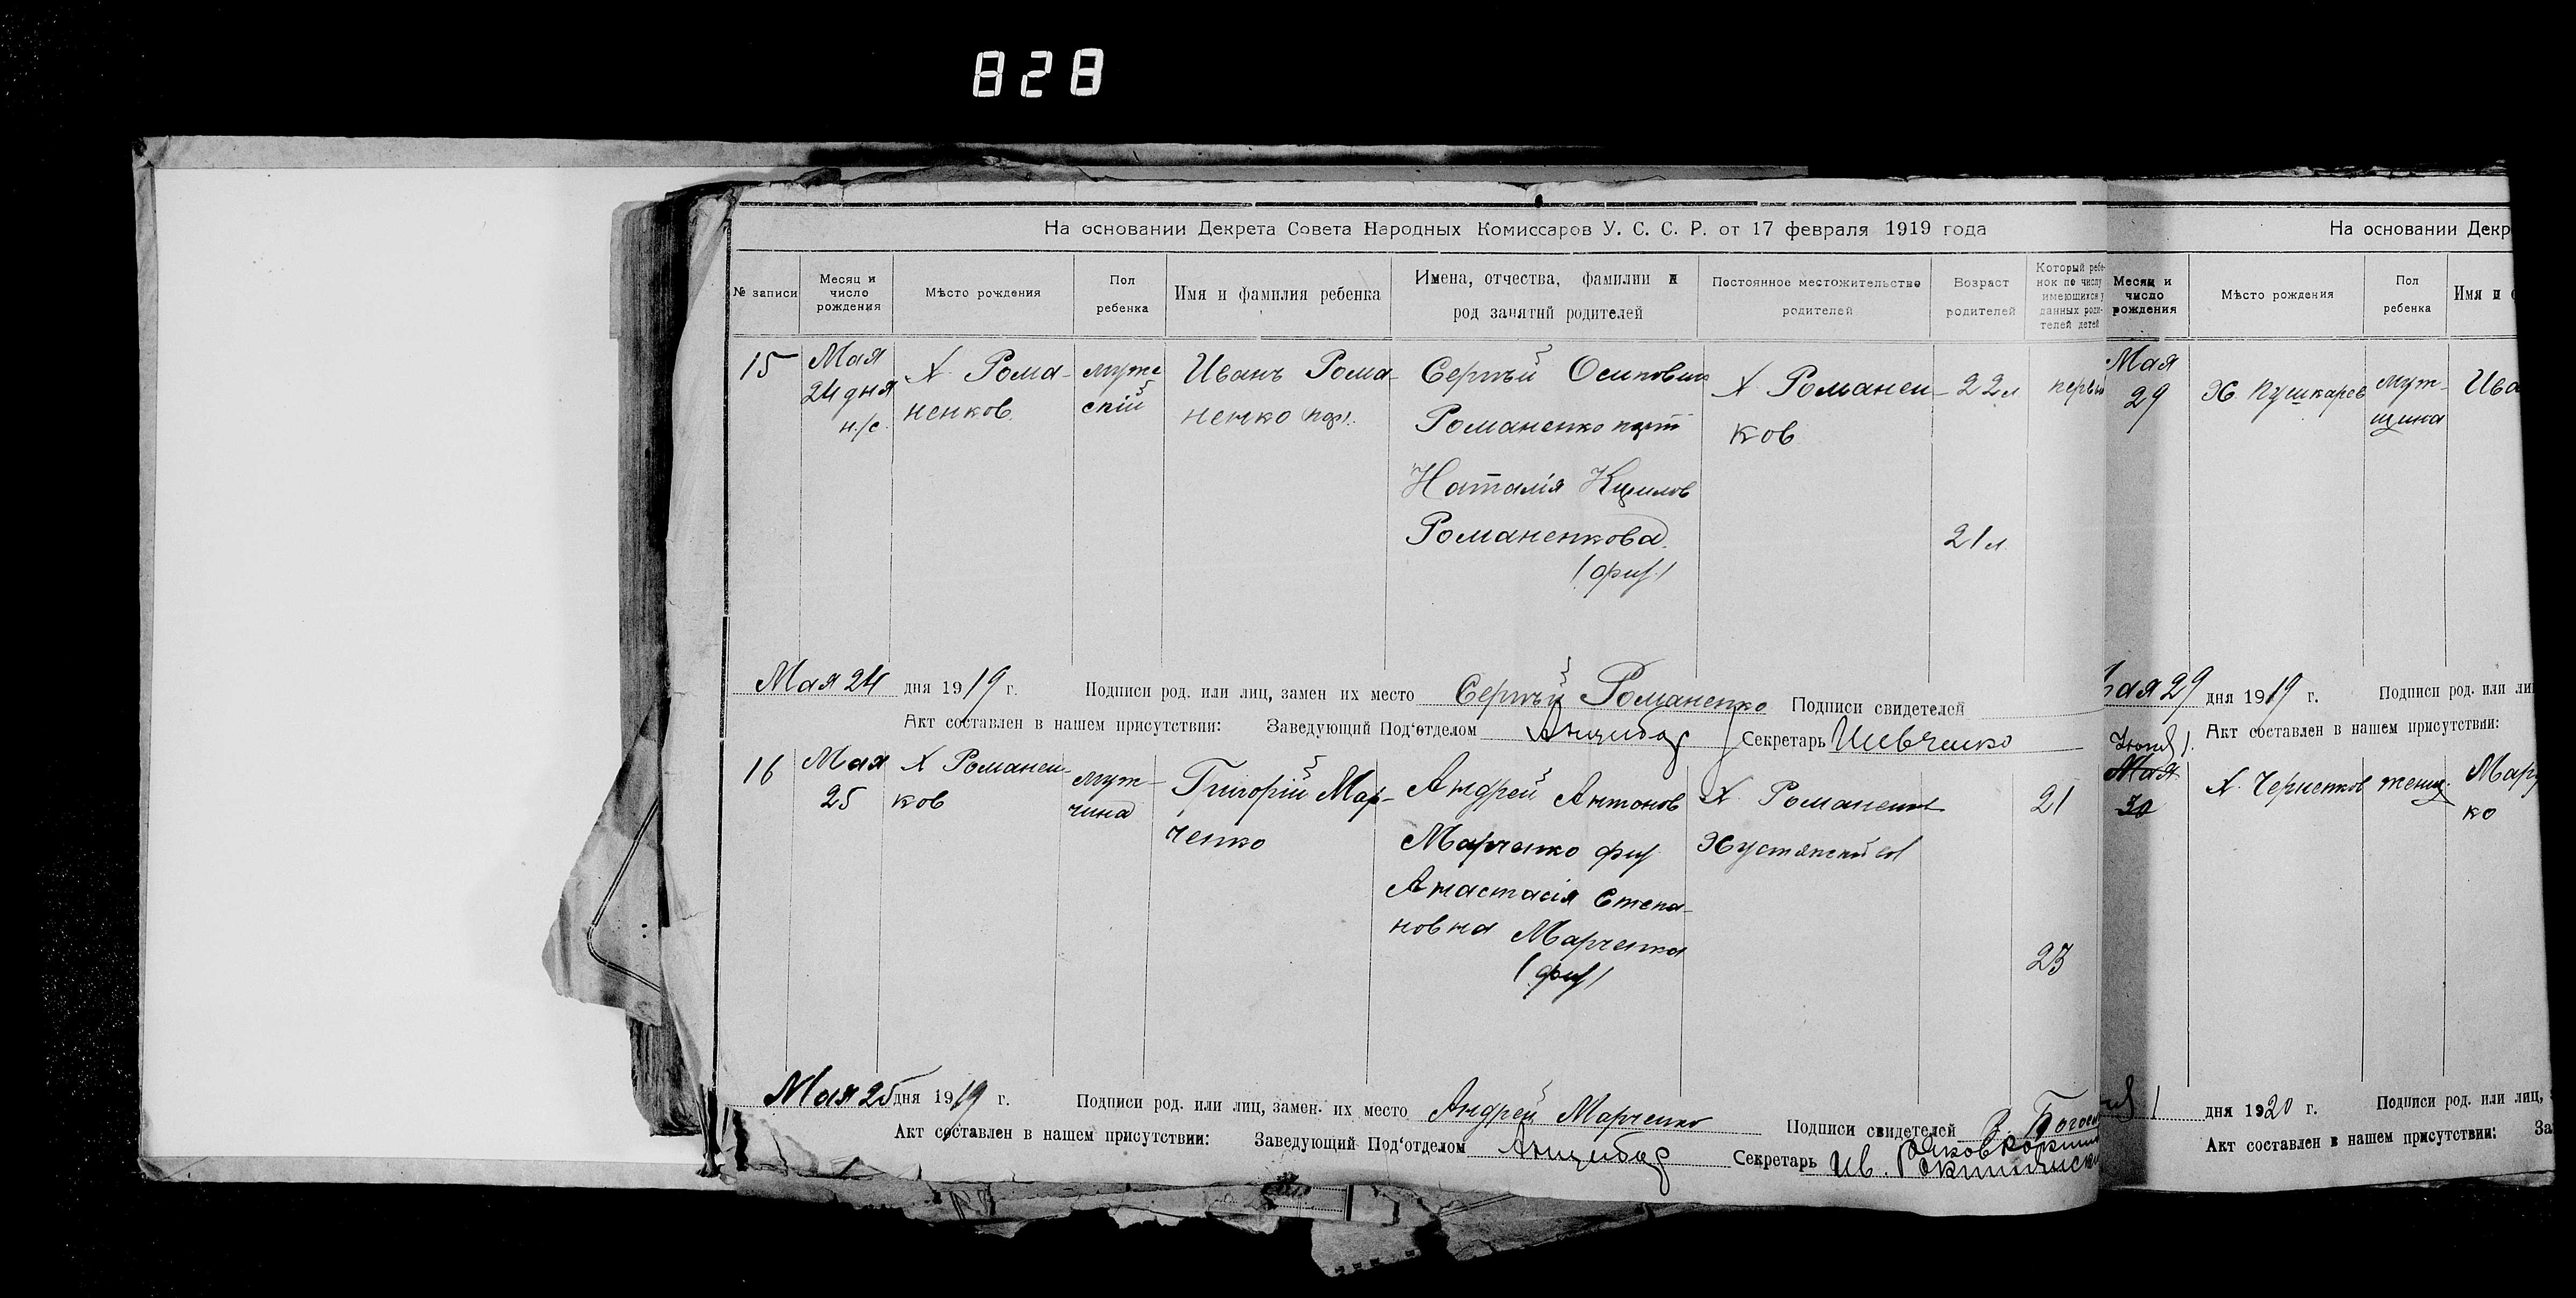 828
На основании Декрета Совета Народных Комиссаров У. С. С. Р. от 17 февраля 1919 года
№ записи
Месяц и
число
рождения
Мѣсто рождения
Пол
ребенка
Имя и фамилия ребенка
Имена, отчества, фамилии и
род занятий родителей
Постоянное местожительство
родителей
Возраст
родителей
Который ребе-
нок по числу
имеющихся у
данных роди-
телей детей
15
Мая
24 дня
н./с.
Х Рома-
ненков
муже
скій
Иванъ Рома-
ненко
Сергѣй Осипович
Романенко
Наталія
Романенкова
Х Романен-
ков
22 л
21 л.
Мая 24 дня 1919 г. Подписи род. или лиц, замен их место Сергѣй Романенко Подписи свидетелей
Акт составлен в нашем присутствии: Заведующий Под‘отделом Анцибор Секретарь Шевченко
16
Мая
25
Х Романен-
ков
муж-
чина
Григорій Мар-
ченко
Андрей Антонов
Марченко
Анастасія Степа-
новна Марченко
Х Романенков
21
23
Мая 25 дня 1919 г. Подписи род. или лиц, замен. их место Андрей Марченко Подписи свидетелей
Акт составлен в нашем присутствии: Заведующий Под‘отделом Анцибор Секретарь Ив.
На основании Декр
Месяц и
число
рождения
Мѣсто рождения
Пол
ребенка
Имя и
Мая
29
Х. Пушкарев
муж-
щина
Ива
ая 29 дня 1919 г. Подписи род. или ли
Акт составлен в нашем присутствии:
Мая
30
Х. Черненков
женщ.
Мар
ко
1 дня 1920 г. Подписи род. или лиц,
Акт составлен в нашем присутствии: За